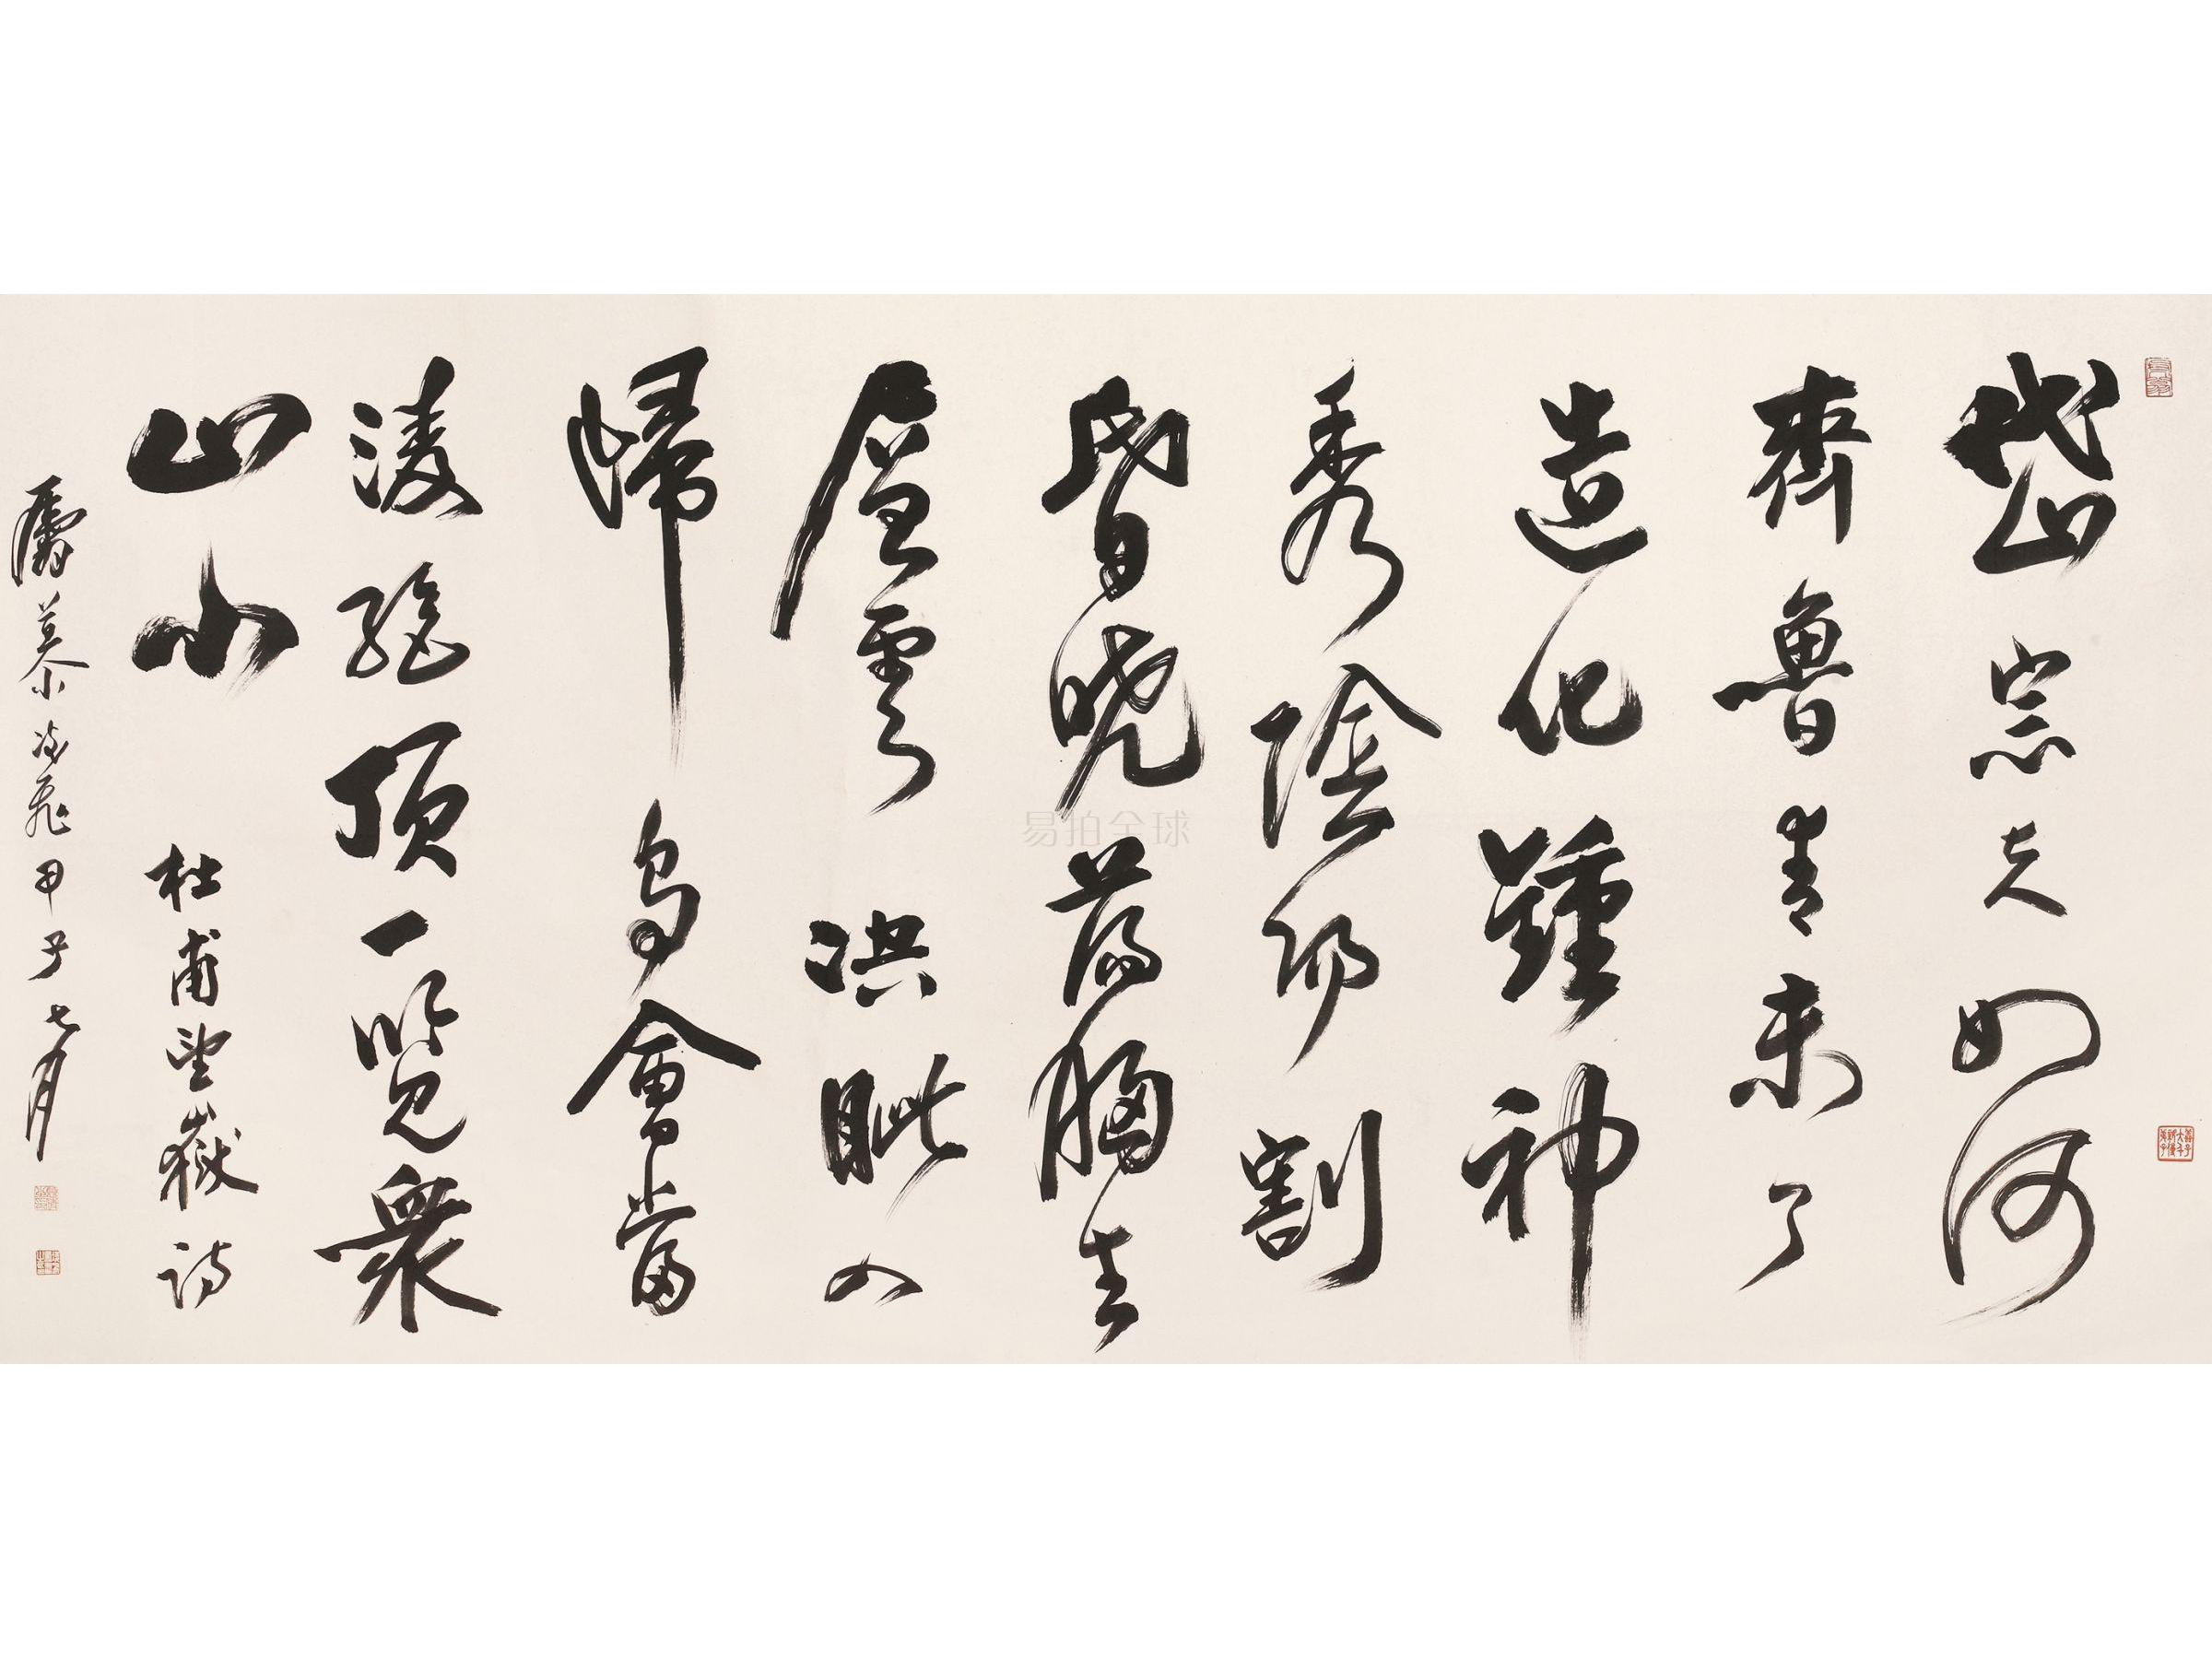 岱宗夫如何
齊魯青未了
造化鍾神
秀陰陽割
昏曉蕩胸生
層雲決眦入
歸鳥會當
凌絕頂一覽衆
山小 杜甫望嶽詩
慕凌飛甲子七月
易拍全球